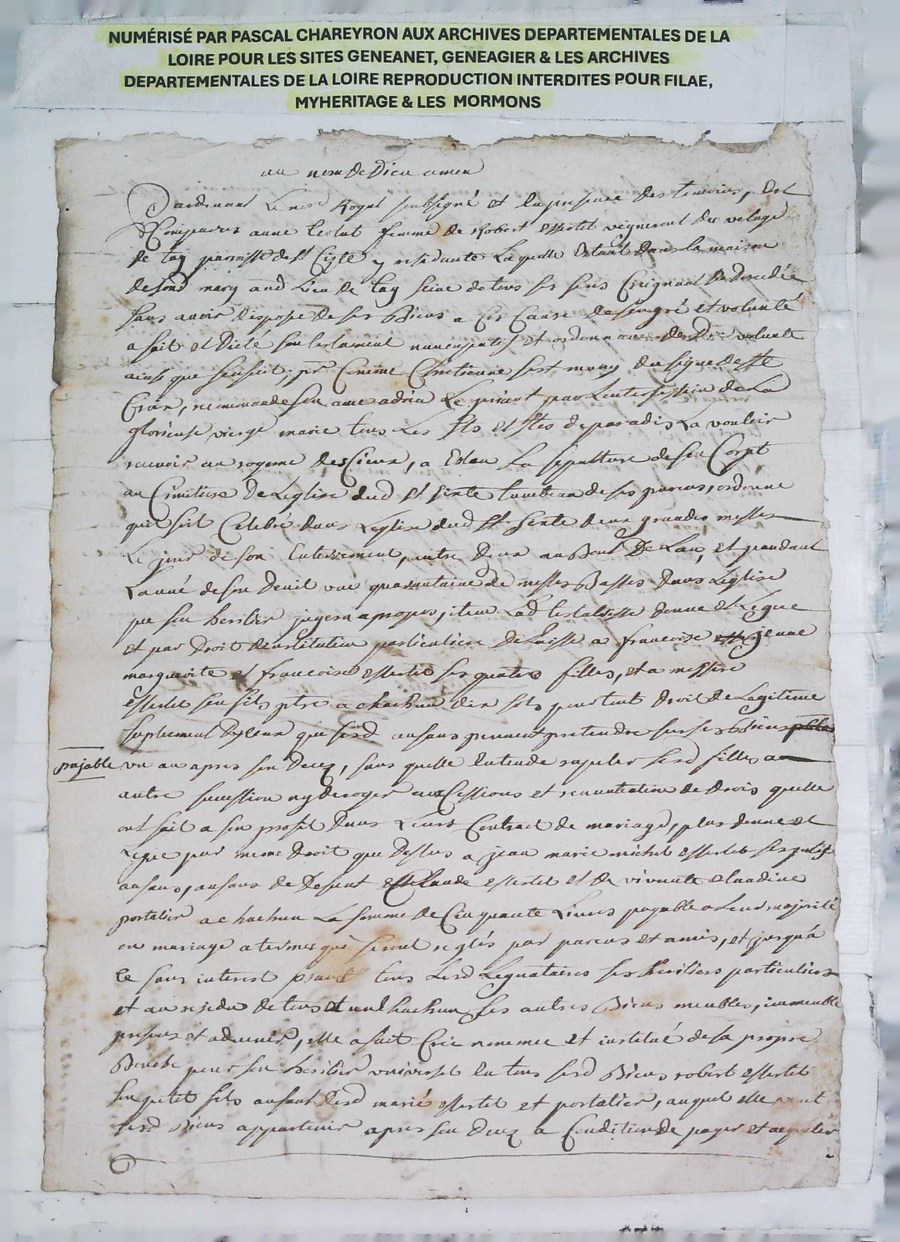 NUMÉRISÉ PAR PASCAL CHAREYRON AUX ARCHIVES DEPARTEMENTALES DE LA
LOIRE POUR LES SITES GENEANET, GENEAGIER & LES ARCHIVES
DEPARTEMENTALES DE LA LOIRE REPRODUCTION INTERDITES POUR FILAE,
MYHERITAGE & LES MORMONS
au nom de Dieu amen
Pardevant Le nore Royal soubsigné et en presence des temoins, Est
Comparue anne femme de Robert essertel vigneront du velage
de tay paroisse de St Ciste y residante Laquelle Estant dans la maison
de sond mary aud Lieu de tay seine de tous ses sens Creignant de deceder
sans avoir disposé de ses Biens a Ces Cause de son gré et volonté
a fait et Dicté son testament nuncupatif et ordonnance de Dre volonté
ainsi que sensuit, pr Comme Chretienne sest muny du signe de Ste
Croix, recommande son ame a dieu Le priant par Lentersession de La
glorieuse vierge marie tous Les Sts et Stes de paradis La vouloir
recevoir au royome des Cieux, a Esleu La sepulture de son Corpt
au Cimetiere De Leglise dud St Siste tombeau de ses parens, ordonne
qui soit Celebré dans Leglise dud St Siste deux grandes messes
Le jour de son Enterrement, autre Deux au Bout De Lan, et pendant
Lanné de son deuil une quarantaine de messes Basses dans Leglise
que son heritier jugera apropos, item Lad testatrisse donne et Legue
et par Droit dinstitution particuliere Delaisse a francoise jeanne
marguerite et francoise essertel ses quatre filles, et a messire
essertel son fils ptre a chachun dix sols pour tout droit de Legitime
suplement dyceux qui serd ausans peuvent pretendre sur ses Biens
payable un an apres son Decez, sans quelle Entende rapeler serd filles a
autre sucession ny deroger aux Cessions et renontiation de drois quelle
ont fait a son profit dans Leurs Contract de mariage, plus donne et
Legue par meme Droit que Dessus a jean marie michel essertel ses petit
ansans, ansans de Defunt Claude essertel et de vivente Claudine
portalier a chachun La somme de Cinquante Livres payable a Leur majorité
ou mariage a termes qui seront reglés par parens et amis, et jusqua
ce sans interest tous Lesd Legnataires ses heritiers particuliers
et au residu de tous et un chachun ses autres Biens meubles, immeuble
presens et advenir, elle a fait Crée nommée et institué de sa propre
Bouche pour son heritier universel en tous serd Biens robert essertel
son petit fils ansant desd mariés essertel et portalier, auquel elle veut
serd Biens appartenir apres son Decez a Condition de payer et aquiter